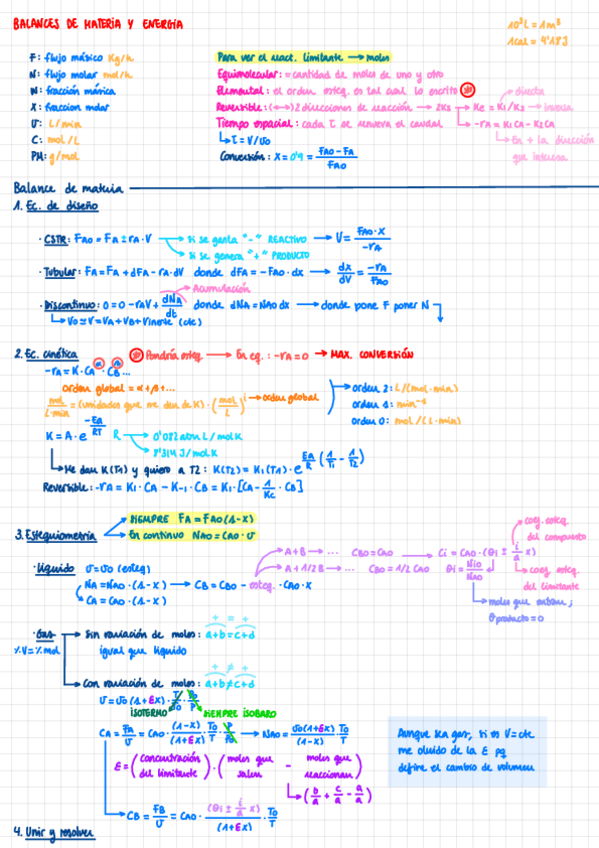 BALANCES DE MATERIA Y ENERGÍA
10³L = 1m³
1cal = 4'18J
F: flujo másico Kg/h
N: flujo molar mol/h
W: fracción másica
X: fraccion molar
U: L/min
C: mol/L
PM: g/mol
Para ver el react. limitante → moles
Equimolecular: = cantidad de moles de uno y otro
Elemental: el orden esteq. es tal cual lo escrito
Reversible: (↔) 2 direcciones de reacción → 2Ks → Ke = K1/K2 → inversa
directa
Tiempo espacial: cada τ se renueva el caudal
-rA = K1CA - K2CB
τ = V/υ0
En + la dirección
que interesa
Conversión: X = 0'9 = (FA0 - FA)/FA0
Balance de materia
1. Ec. de diseño
· CSTR: FA0 = FA ± rA·V → si se gasta "-" REACTIVO → V = FA0·X/-rA
si se genera "+" PRODUCTO
· Tubular: FA = FA + dFA - rA·dV donde dFA = -FA0·dx → dx/dV = -rA/FA0
Acumulación
· Discontinuo: 0 = 0 - rAV + dNA/dt donde dNA = NA0dx → donde pone F poner N
V0 = V = VA + VB + Vinerte (cte)
2. Ec. cinética
Pondría esteq. → En eq.: -rA = 0 → MAX. CONVERSIÓN
-rA = K·CA^α·CB^β...
orden global = α+β+...
mol/L·min = (unidades que me dan de K)·(mol/L)^i → orden global
orden 2: L/(mol·min)
orden 1: min⁻¹
orden 0: mol/(L·min)
K = A·e^(-Ea/RT)
R → 0'082 atm L/mol K
8'314 J/mol K
Me dan K(T1) y quiero a T2: K(T2) = K1(T1)·e^(Ea/R (1/T1 - 1/T2))
Reversible: -rA = K1·CA - K-1·CB = K1·[CA - 1/Kc·CB]
3. Estequiometría
SIEMPRE FA = FA0(1-X)
En continuo NA0 = CA0·υ
coef. esteq.
del compuesto
· Líquido υ = υ0 (esteq)
A+B → ... CB0 = CA0 → Ci = CA0·(θi ± i/a x)
NA = NA0·(1-X) → CB = CB0 - esteq.·CA0·X
A + 1/2B → ... CB0 = 1/2 CA0 θi = Ni0/NA0
coef. esteq.
del limitante
CA = CA0·(1-X)
moles que entran;
θproducto = 0
· Gas
%V = % mol
Sin variación de moles: a+b = c+d
igual que líquido
Con variación de moles: a+b ≠ c+d
υ = υ0(1+εX)·T/T0·P0/P
ISOTERMO SIEMPRE ISOBARO
CA = FA/υ = CA0·(1-X)/(1+εX)·T0/T·P/P0 → NA0 = υ0(1+εX)/(1-X)·T0/T
ε = (concentración del limitante)·(moles que salen - moles que reaccionan)
(b/a + c/a - a/a)
CB = FB/υ = CA0·(θi ± i/a x)/(1+εX)·T0/T
Aunque sea gas, si es V=cte
me olvido de la ε pq
define el cambio de volumen
4. Unir y resolver